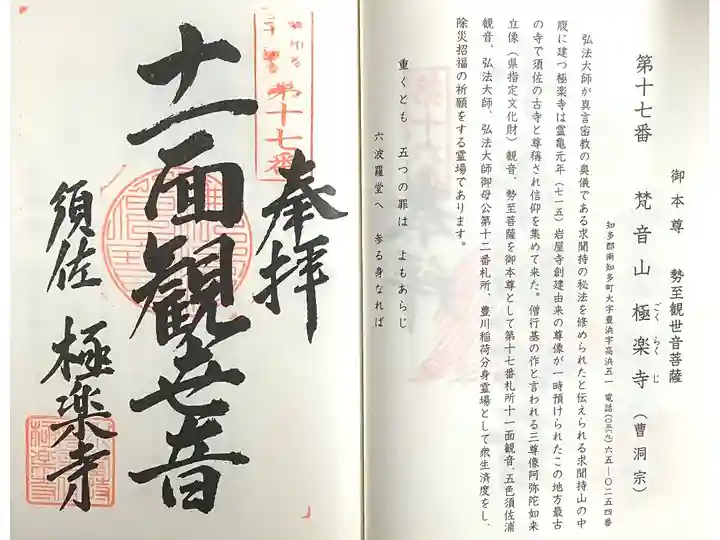 御本尊 勢至観世音菩薩
第十七番 梵音山 極楽寺（曹洞宗）
ごくらくじ
知多郡南知多町大字豊浜字高浜五一 電話(〇五六九)六五―〇二五四番
弘法大師が真言密教の奥儀である求聞持の秘法を修められたと伝えられる求聞持山の中
腹に建つ極楽寺は霊亀元年（七一五）岩屋寺創建由来の尊像が一時預けられたこの地方最古
の寺で須佐の古寺と尊称され信仰を集めて来た。僧行基の作と言われる三尊像阿弥陀如来
立像（県指定文化財）観音、勢至菩薩を御本尊として第十七番札所十一面観音、五色須佐浦
観音、弘法大師、弘法大師御母公第十二番札所、豊川稲荷分身霊場として衆生済度をし、
除災招福の祈願をする霊場であります。
重くとも 五つの罪は よもあらじ
六波羅堂へ 参る身なれば
奉拝
第十七番
十一面観世音
須佐 極楽寺